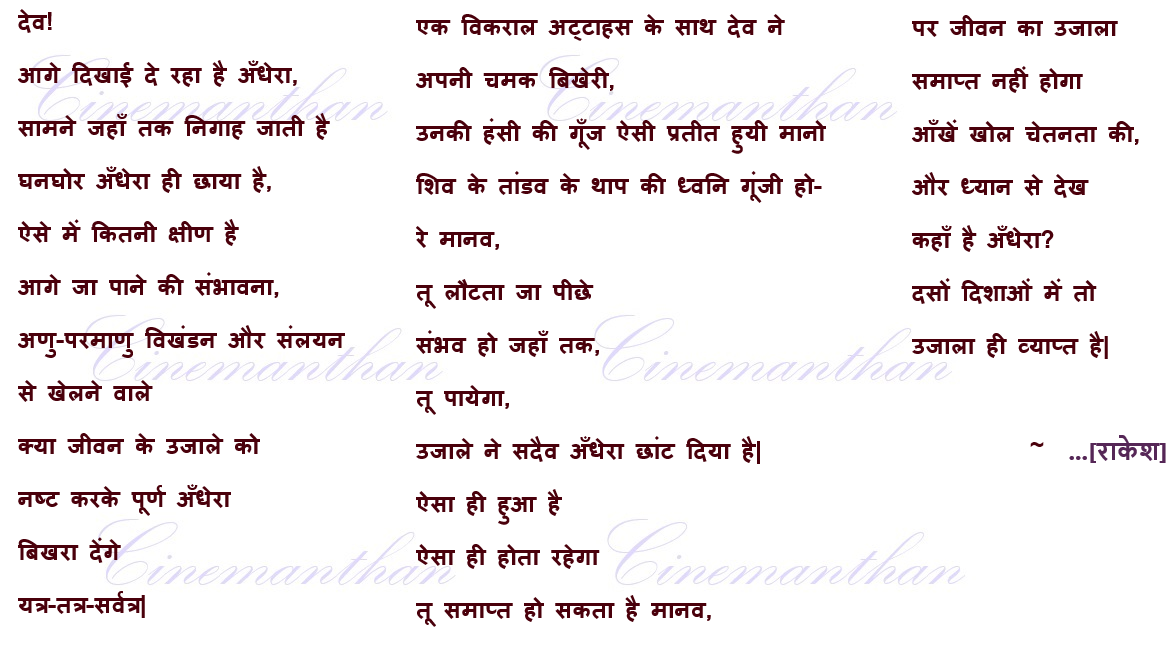 देव!
आगे दिखाई दे रहा है अँधेरा,
सामने जहाँ तक निगाह जाती है
घनघोर अँधेरा ही छाया है,
ऐसे में कितनी क्षीण है
आगे जा पाने की संभावना,
अणु-परमाणु विखंडन और संलयन
से खेलने वाले
क्या जीवन के उजाले को
नष्ट करके पूर्ण अँधेरा
बिखरा देंगे
यत्र-तत्र-सर्वत्र|
एक विकराल अट्टाहस के साथ देव ने
अपनी चमक बिखेरी,
उनकी हंसी की गूँज ऐसी प्रतीत हुयी मानो
शिव के तांडव के थाप की ध्वनि गूंजी हो-
रे मानव,
तू लौटता जा पीछे
संभव हो जहाँ तक,
तू पायेगा,
उजाले ने सदैव अँधेरा छांट दिया है|
ऐसा ही हुआ है
ऐसा ही होता रहेगा
तू समाप्त हो सकता है मानव,
पर जीवन का उजाला
समाप्त नहीं होगा
आँखें खोल चेतनता की,
और ध्यान से देख
कहाँ है अँधेरा?
दसों दिशाओं में तो
उजाला ही व्याप्त है|
~ …[राकेश]
Cinemanthan
Cinemanthan
Cinemanthan
Cinemanthan
Cinemanthan
Cinemanthan